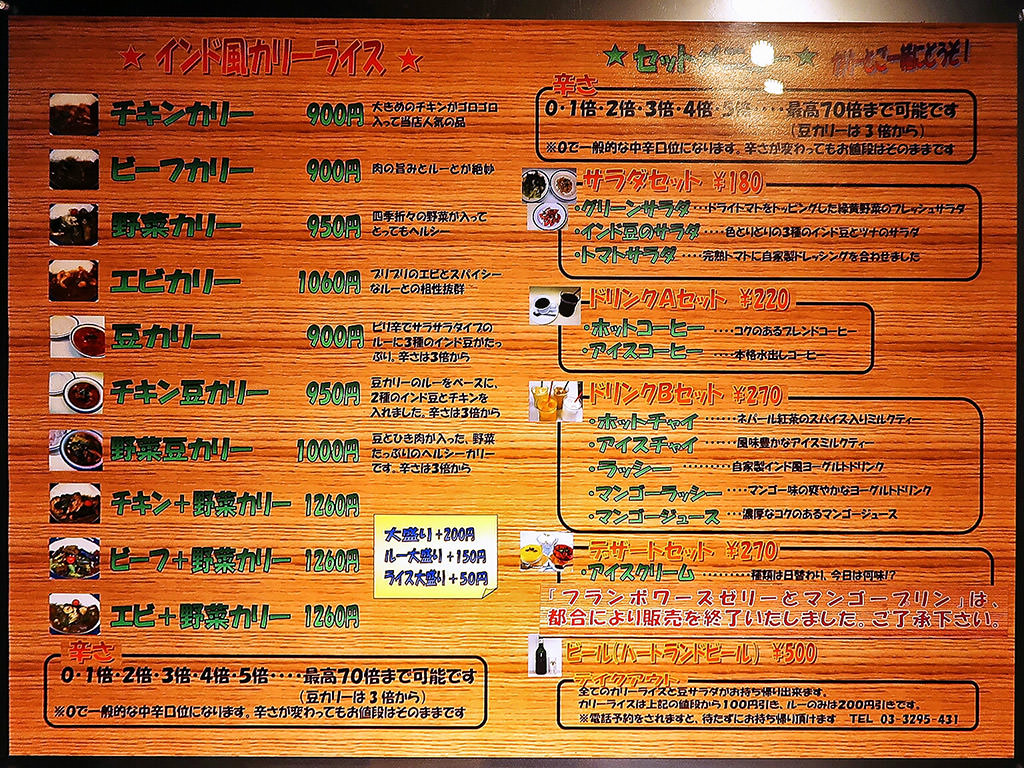 ★ インド風カリーライス ★
チキンカリー 900円 大きめのチキンがゴロゴロ
入って当店人気の品
ビーフカリー 900円 肉の旨みとルーとが絶妙
野菜カリー 950円 四季折々の野菜が入って
とってもヘルシー
エビカリー 1060円 プリプリのエビとスパイシー
なルーとの相性抜群
豆カリー 900円 ピリ辛でサラサラタイプの
ルーに3種のインド豆がたっ
ぷり。辛さは3倍から
チキン豆カリー 950円 豆カリーのルーをベースに、
2種のインド豆とチキンを
入れました。辛さは3倍から
野菜豆カリー 1000円 豆とひき肉が入った、野菜
たっぷりのヘルシーカリー
です。辛さは3倍から
チキン+野菜カリー 1260円
ビーフ+野菜カリー 1260円
エビ+野菜カリー 1260円
大盛り+200円
ルー大盛り+150円
ライス大盛り+50円
辛さ
0・1倍・2倍・3倍・4倍・5倍・・・・最高70倍まで可能です
(豆カリーは3倍から)
※0で一般的な中辛口位になります。辛さが変わってもお値段はそのままです
★ セットメニュー ★ カリーとご一緒にどうぞ!
辛さ
0・1倍・2倍・3倍・4倍・5倍・・・・最高70倍まで可能です
(豆カリーは3倍から)
※0で一般的な中辛口位になります。辛さが変わってもお値段はそのままです
サラダセット ¥180
・グリーンサラダ・・・ドライトマトをトッピングした緑黄野菜のフレッシュサラダ
・インド豆のサラダ・・・・色とりどりの3種のインド豆とツナのサラダ
・トマトサラダ・・・・完熟トマトに自家製ドレッシングを合わせました
ドリンクAセット ¥220
・ホットコーヒー・・・・・コクのあるブレンドコーヒー
・アイスコーヒー・・・・・本格水出しコーヒー
ドリンクBセット ¥270
・ホットチャイ・・・・・・ネパール紅茶のスパイス入りミルクティー
・アイスチャイ・・・・・・風味豊かなアイスミルクティー
・ラッシー・・・・・・・・・自家製インド風ヨーグルトドリンク
・マンゴーラッシー・・・・マンゴー味の爽やかなヨーグルトドリンク
・マンゴージュース・・・・濃厚なコクのあるマンゴージュース
デザートセット ¥270
・アイスクリーム・・・・・・・・・種類は日替わり、今日は何味!?
「フランボワーズゼリーとマンゴープリン」は、
都合により販売を終了いたしました。ご了承下さい。
ビール(ハートランドビール) ¥500
テイクアウト
全てのカリーライスと豆サラダがお持ち帰り出来ます。
カリーライスは上記の値段から100円引き、ルーのみは200円引きです。
※電話予約をされますと、待たずにお持ち帰り頂けます TEL 03-3295-431